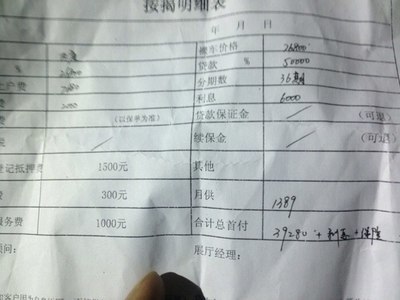 按揭明细表
年 月 日
裸车价格 26800
% 贷款 50000
户费 分期数 36期
费 利息 6000
(以保单为准) 贷款保证金 (可退)
续保金 (可退)
登记抵押费 1500元 其他
300元 月供 1389
服务费 1000元 合计总首付 39280 + 利息 + 保险
问: 展厅经理: